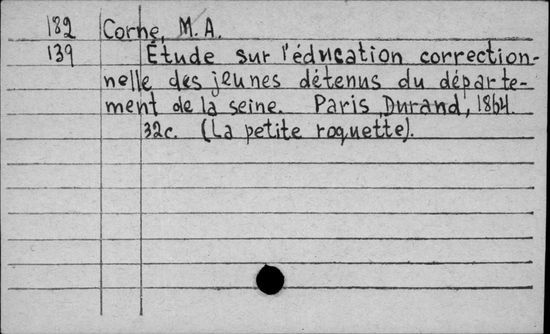 182 Corne, M. A.
139 Étude sur l'éducation correction-
nelle des jeunes détenus du départe-
ment de la seine. Paris, Durand, 1864.
32c. (La petite roquette).